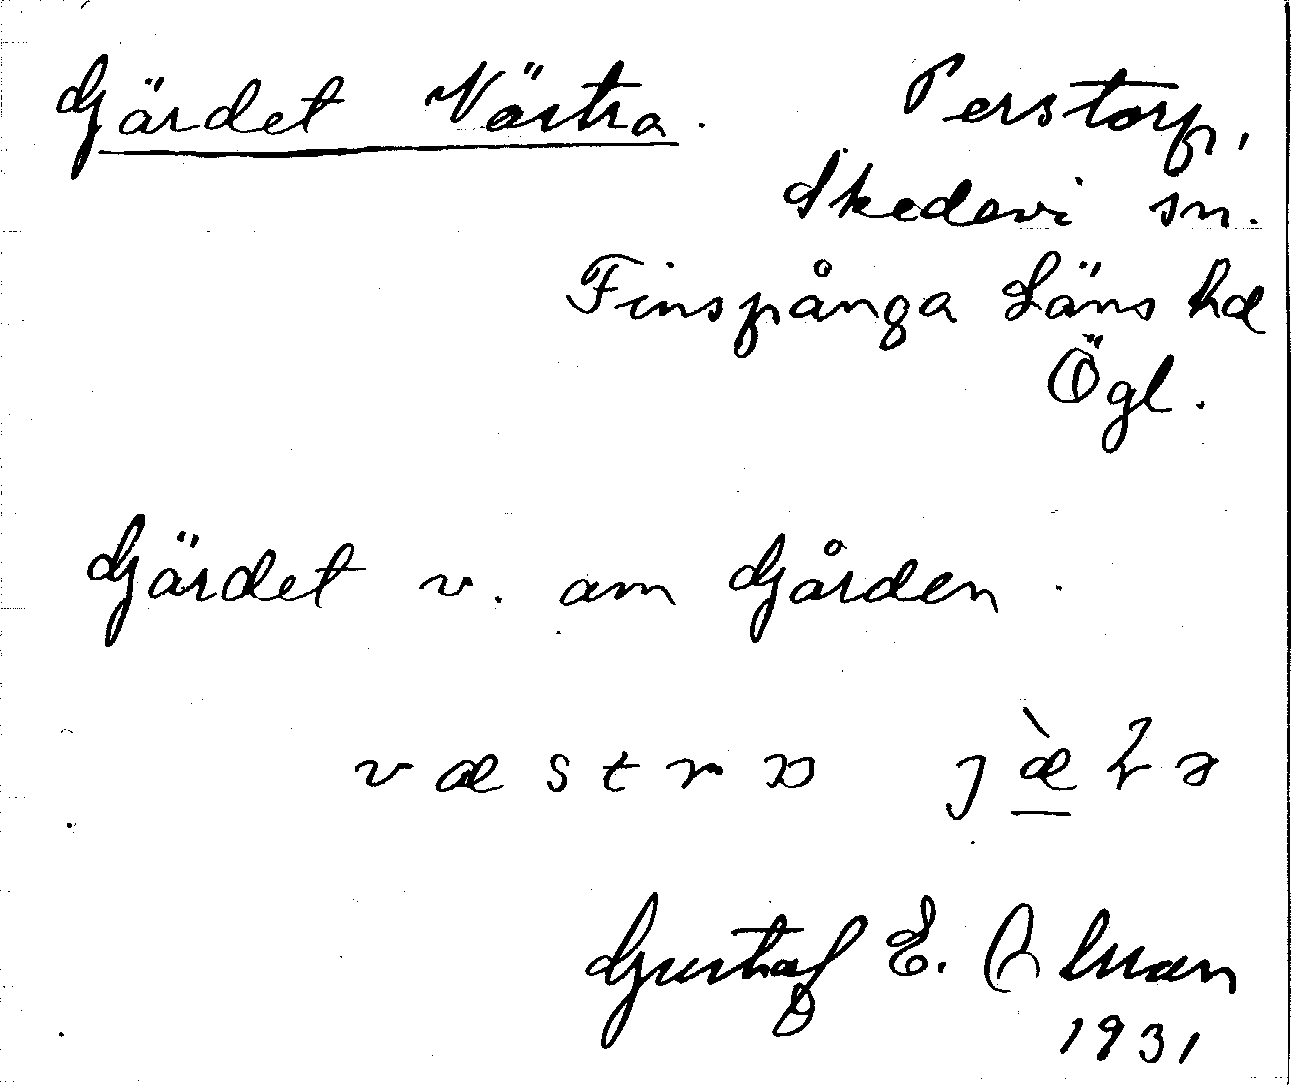 Gärdet Västra. Perstorp,
Skedevi sn.
Finspånga Läns hd
Ögl.
Gärdet v. om Gården.
Gustaf E. Alman
1931